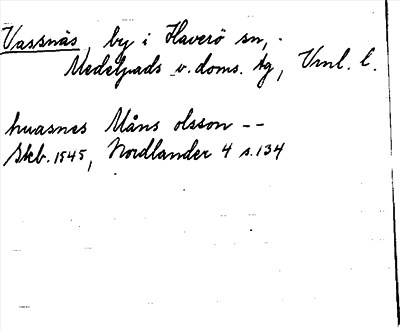 Vassnäs, by i Haverö sn,
Medelpads v. doms. tg, Vnl. l.
huasnes Måns olsson --
Skb. 1545, Nordlander 4 s. 134